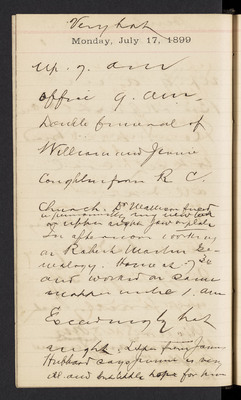 Very hot
Monday, July 17, 1899
Up. 7. am
office 9. am.
Double funeral of
William and Jennie
Coughlin from R C.
Church. Dr Watkins fixed
my new
on upper right jaw
In afternoon working
on Robert Martin Ge
nealogy. Home as 7 30
and worked on same
matter until 1. am
Exceedingly hot
night. Letter from James
Hubbard says is very
ill and but little hope for him